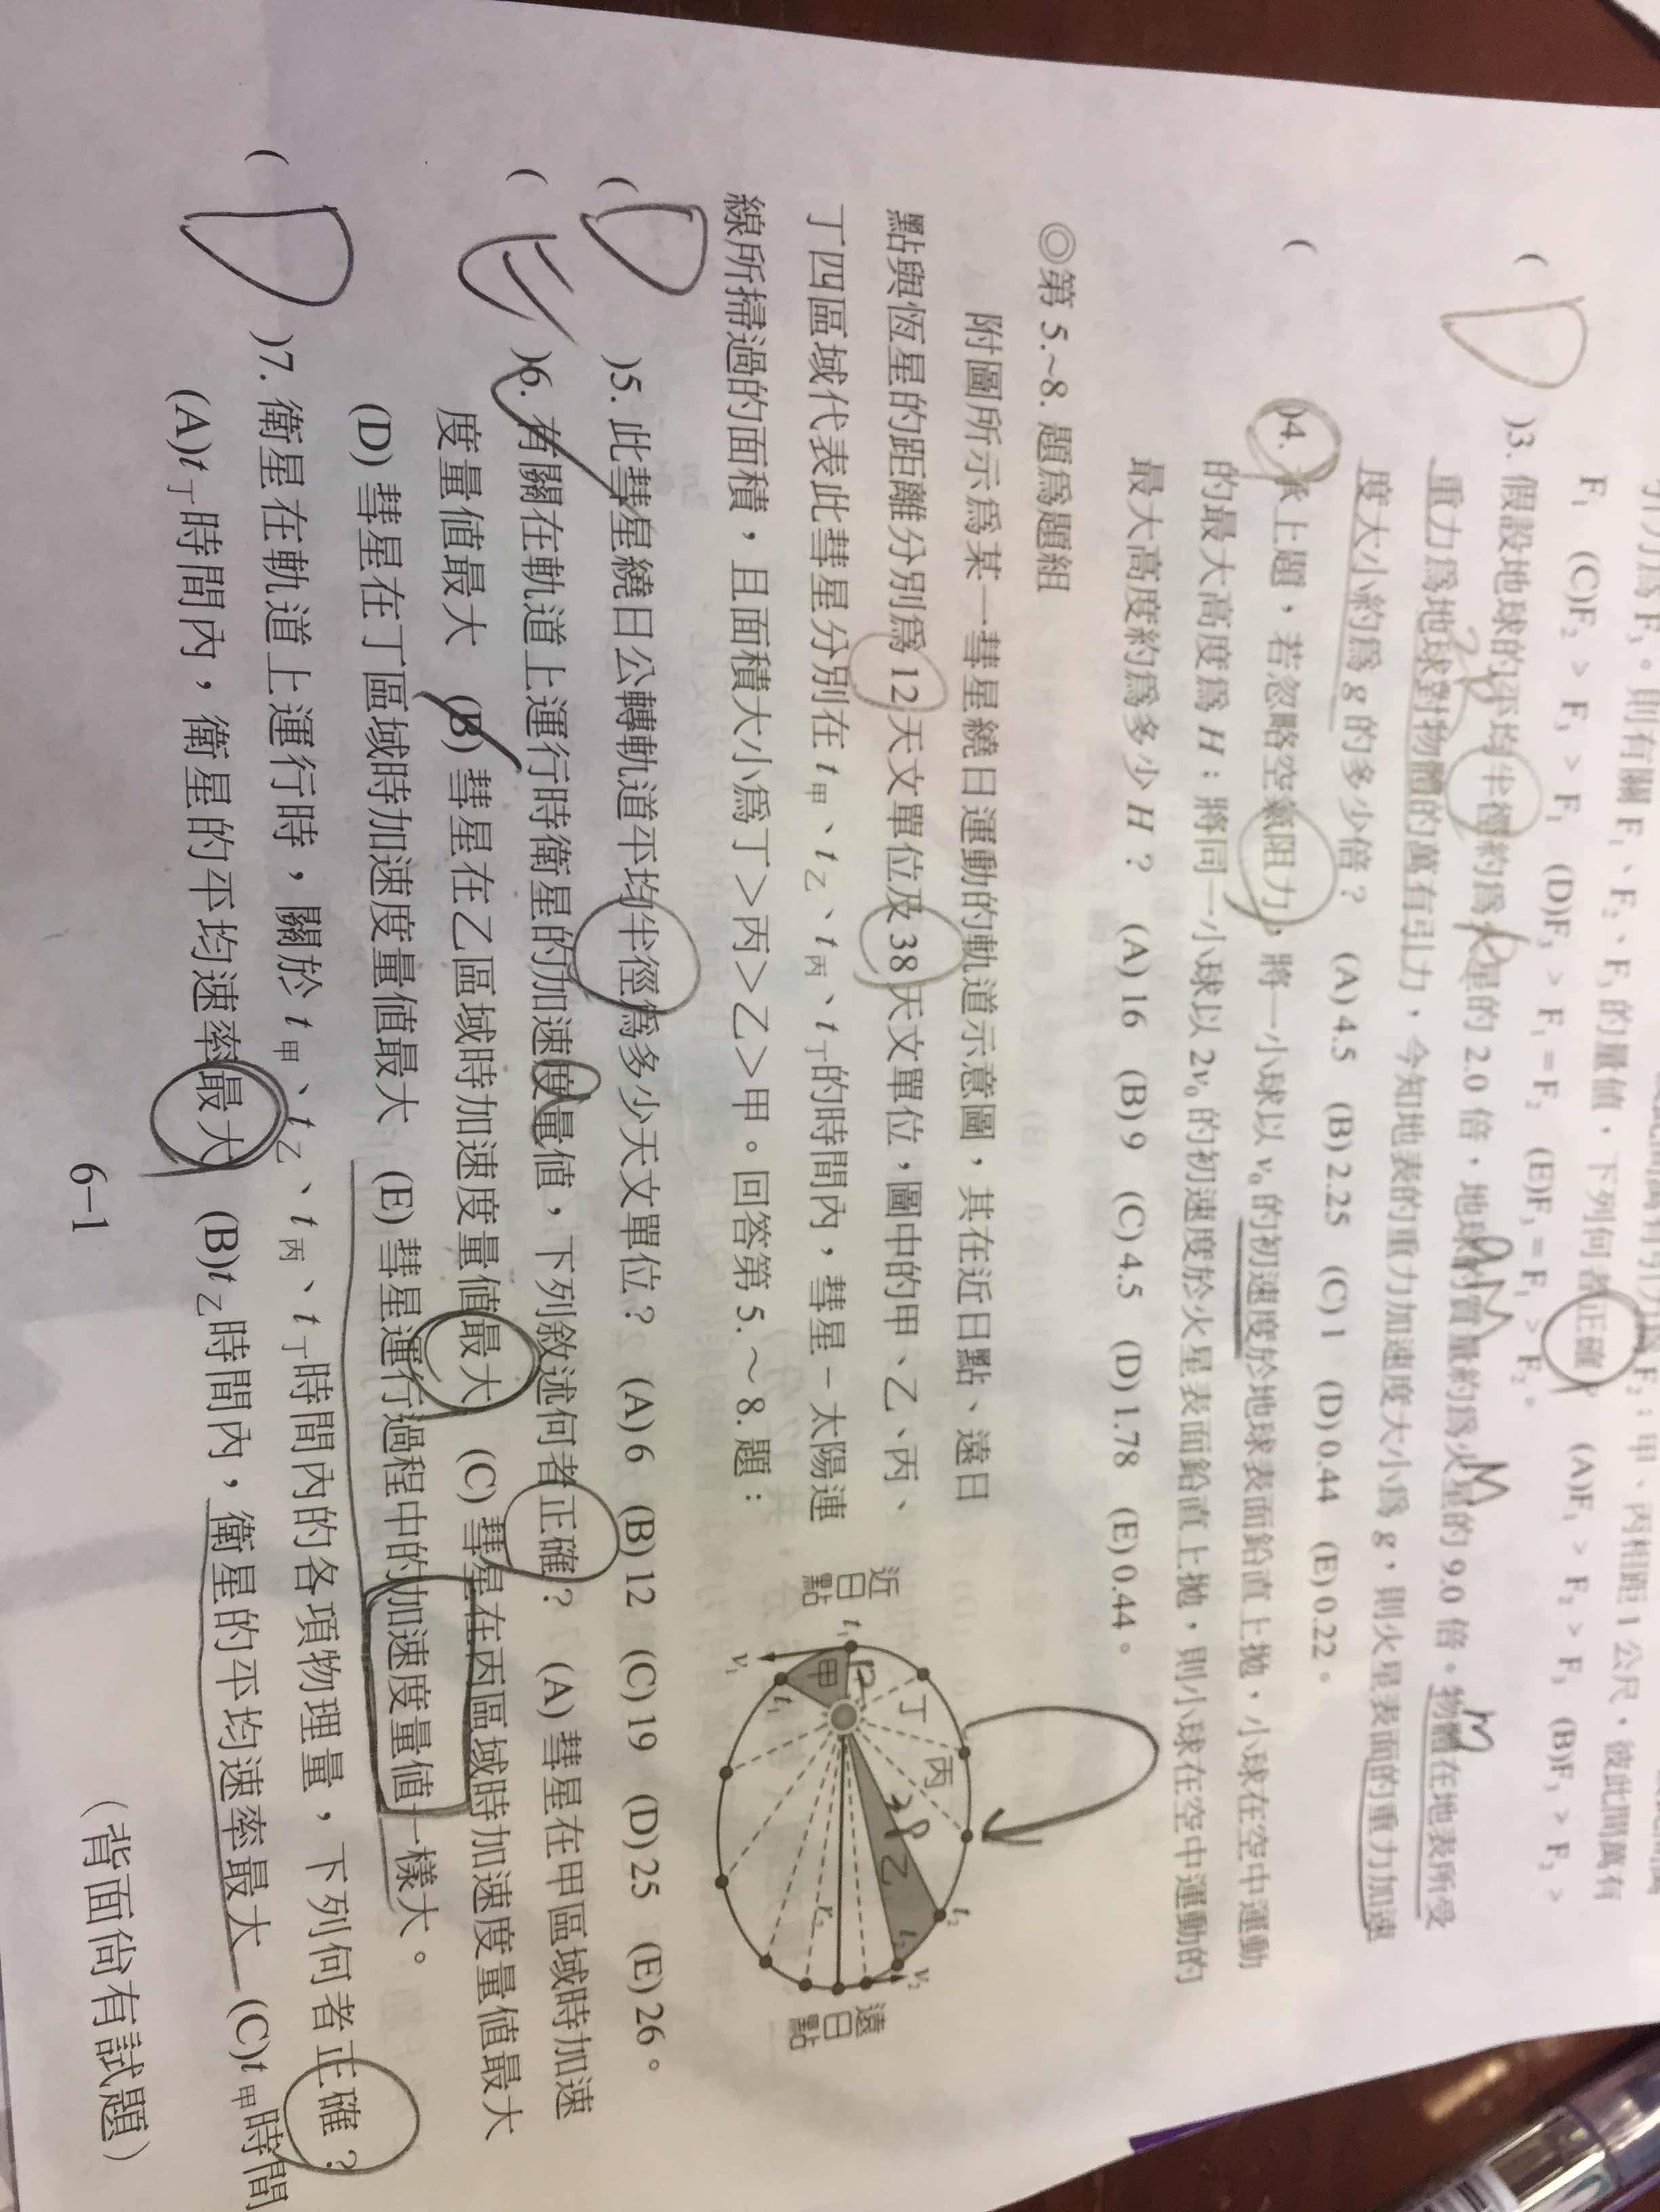 引力為 F₁。則有關 F₁、F₂、F₃的量值，下列何者正確？ (A)F₁ > F₂ > F₃ (B)F₃ > F₂ >
F₁ (C)F₂ > F₃ > F₁ (D)F₃ > F₁ = F₂ (E)F₃ = F₁ > F₂。
( D )3. 假設地球的平均半徑約為火星的 2.0 倍，地球的質量約為火星的 9.0 倍。物體在地表所受
重力為地球對物體的萬有引力，今知地表的重力加速度大小為 g，則火星表面的重力加速
度大小約為 g 的多少倍？ (A) 4.5 (B) 2.25 (C) 1 (D) 0.44 (E) 0.22。
( )4. 承上題，若忽略空氣阻力，將一小球以 v₀ 的初速度於地球表面鉛直上拋，小球在空中運動
的最大高度為 H；將同一小球以 2v₀ 的初速度於火星表面鉛直上拋，則小球在空中運動的
最大高度約為多少 H？ (A) 16 (B) 9 (C) 4.5 (D) 1.78 (E) 0.44。
◎第 5.~8. 題為題組
附圖所示為某一彗星繞日運動的軌道示意圖，其在近日點、遠日
點與恆星的距離分別為 12 天文單位及 38 天文單位，圖中的甲、乙、丙、
丁四區域代表此彗星分別在 t甲、t乙、t丙、t丁的時間內，彗星－太陽連
線所掃過的面積，且面積大小為丁＞丙＞乙＞甲。回答第 5.～8. 題：
近日點
遠日點
甲
乙
丙
丁
v₁
v₂
r₂
( D )5. 此彗星繞日公轉軌道平均半徑為多少天文單位？ (A) 6 (B) 12 (C) 19 (D) 25 (E) 26。
( )6. 有關在軌道上運行時衛星的加速度量值，下列敘述何者正確？ (A) 彗星在甲區域時加速
度量值最大 (B) 彗星在乙區域時加速度量值最大 (C) 彗星在丙區域時加速度量值最大
(D) 彗星在丁區域時加速度量值最大 (E) 彗星運行過程中的加速度量值一樣大。
( D )7. 衛星在軌道上運行時，關於 t甲、t乙、t丙、t丁時間內的各項物理量，下列何者正確？
(A)t丁時間內，衛星的平均速率最大 (B)t乙時間內，衛星的平均速率最大 (C)t甲時間
6-1
（背面尚有試題）